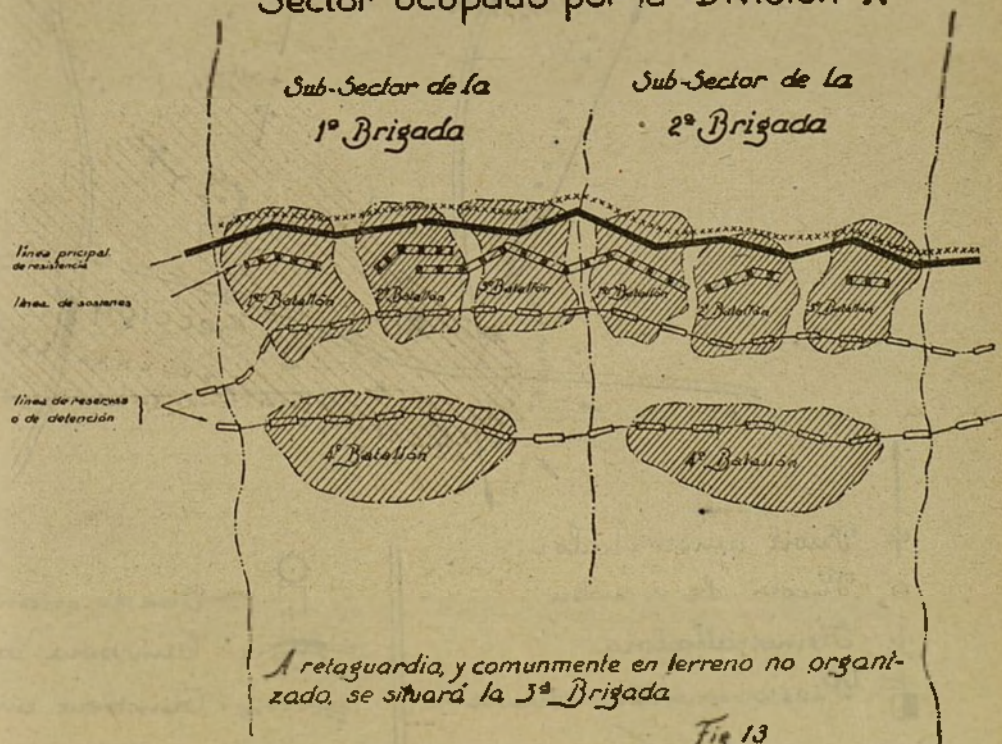 Sector ocupado por la División X
Sub-Sector de la
1ª Brigada
Sub-Sector de la
2ª Brigada
línea pricipal
de resistencia
línea de sostenes
línea de reservas
o de detención
1er Batallón
2º Batallón
3er Batallón
1er Batallón
2º Batallón
3er Batallón
4º Batallón
4º Batallón
A retaguardia, y comunmente en terreno no organi-
zado, se situará la 3ª Brigada
Fig 13